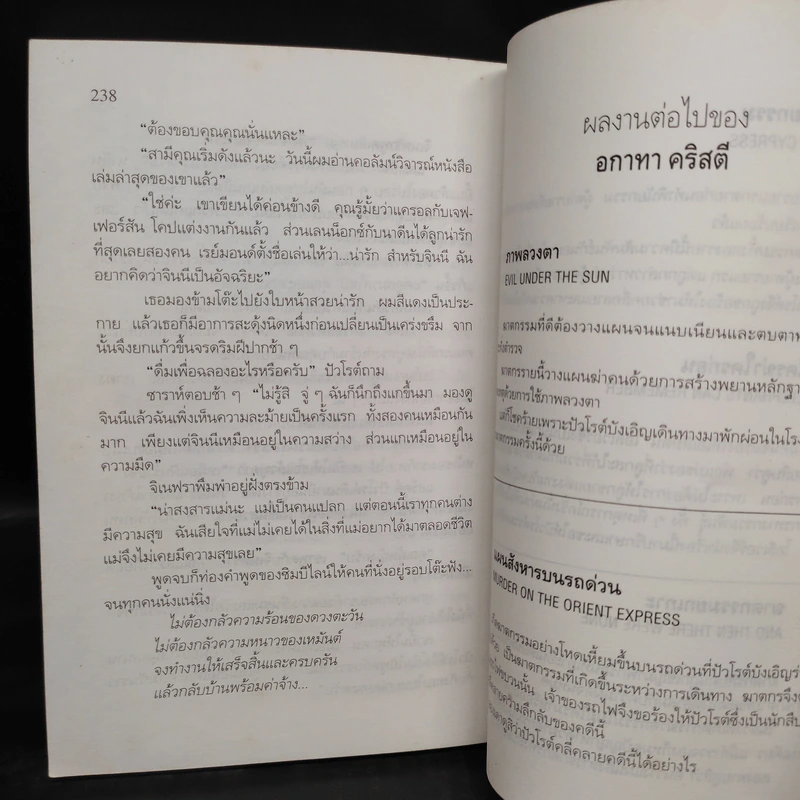 238
“ต้องขอบคุณคุณนั่นแหละ”
“สามีคุณเริ่มดังแล้วนะ วันนี้ผมอ่านคอลัมน์วิจารณ์หนังสือ
เล่มล่าสุดของเขาแล้ว”
“ใช่ค่ะ เขาเขียนได้ค่อนข้างดี คุณรู้มั้ยว่าแครอลกับเจฟ-
เฟอร์สัน โคปแต่งงานกันแล้ว ส่วนเลนน็อกซ์กับนาดีนได้ลูกน่ารัก
ที่สุดเลยสองคน เรย์มอนด์ตั้งชื่อเล่นให้ว่า...น่ารัก สำหรับจินนี ฉัน
อยากคิดว่าจินนีเป็นอัจฉริยะ”
เธอมองข้ามโต๊ะไปยังใบหน้าสวยน่ารัก ผมสีแดงเป็นประ-
กาย แล้วเธอก็มีอาการสะดุ้งนิดหนึ่งก่อนเปลี่ยนเป็นเคร่งขรึม จาก
นั้นจึงยกแก้วขึ้นจรดริมฝีปากช้า ๆ
“ดื่มเพื่อฉลองอะไรหรือครับ” ปัวโรต์ถาม
ซาราห์ตอบช้า ๆ “ไม่รู้สิ จู่ ๆ ฉันก็นึกถึงแกขึ้นมา มองดู
จินนีแล้วฉันเพิ่งเห็นความละม้ายเป็นครั้งแรก ทั้งสองคนเหมือนกัน
มาก เพียงแต่จินนีเหมือนอยู่ในความสว่าง ส่วนแกเหมือนอยู่ใน
ความมืด”
จิเนฟราพึมพำอยู่ฝั่งตรงข้าม
“น่าสงสารแม่นะ แม่เป็นคนแปลก แต่ตอนนี้เราทุกคนต่าง
มีความสุข ฉันเสียใจที่แม่ไม่เคยได้ในสิ่งที่แม่อยากได้มาตลอดชีวิต
แม่จึงไม่เคยมีความสุขเลย”
พูดจบก็ท่องคำพูดของซิมบีไลน์ให้คนที่นั่งอยู่รอบโต๊ะฟัง...
จนทุกคนนั่งแน่นิ่ง
ไม่ต้องกลัวความร้อนของดวงตะวัน
ไม่ต้องกลัวความหนาวของเหมันต์
จงทำงานให้เสร็จสิ้นและครบครัน
แล้วกลับบ้านพร้อมค่าจ้าง...
ผลงานต่อไปของ
อกาทา คริสตี
ภาพลวงตา
EVIL UNDER THE SUN
ฆาตกรรมที่ดีต้องวางแผนจนแนบเนียนและตบตา
ตำรวจ
ฆาตกรรายนี้วางแผนฆ่าคนด้วยการสร้างพยานหลักฐา
ด้วยการใช้ภาพลวงตา
แต่ก็โชคร้ายเพราะปัวโรต์บังเอิญเดินทางมาพักผ่อนในโรง
ฆาตกรรมครั้งนี้ด้วย
แผนสังหารบนรถด่วน
MURDER ON THE ORIENT EXPRESS
ฆาตกรรมอย่างโหดเหี้ยมขึ้นบนรถด่วนที่ปัวโรต์บังเอิญ
เป็นฆาตกรรมที่เกิดขึ้นระหว่างการเดินทาง ฆาตกรจึง
ขบวนนั้น เจ้าของรถไฟจึงขอร้องให้ปัวโรต์ซึ่งเป็นนักสืบ
ความลึกลับของคดีนี้
ดูสิว่าปัวโรต์คลี่คลายคดีนี้ได้อย่างไร